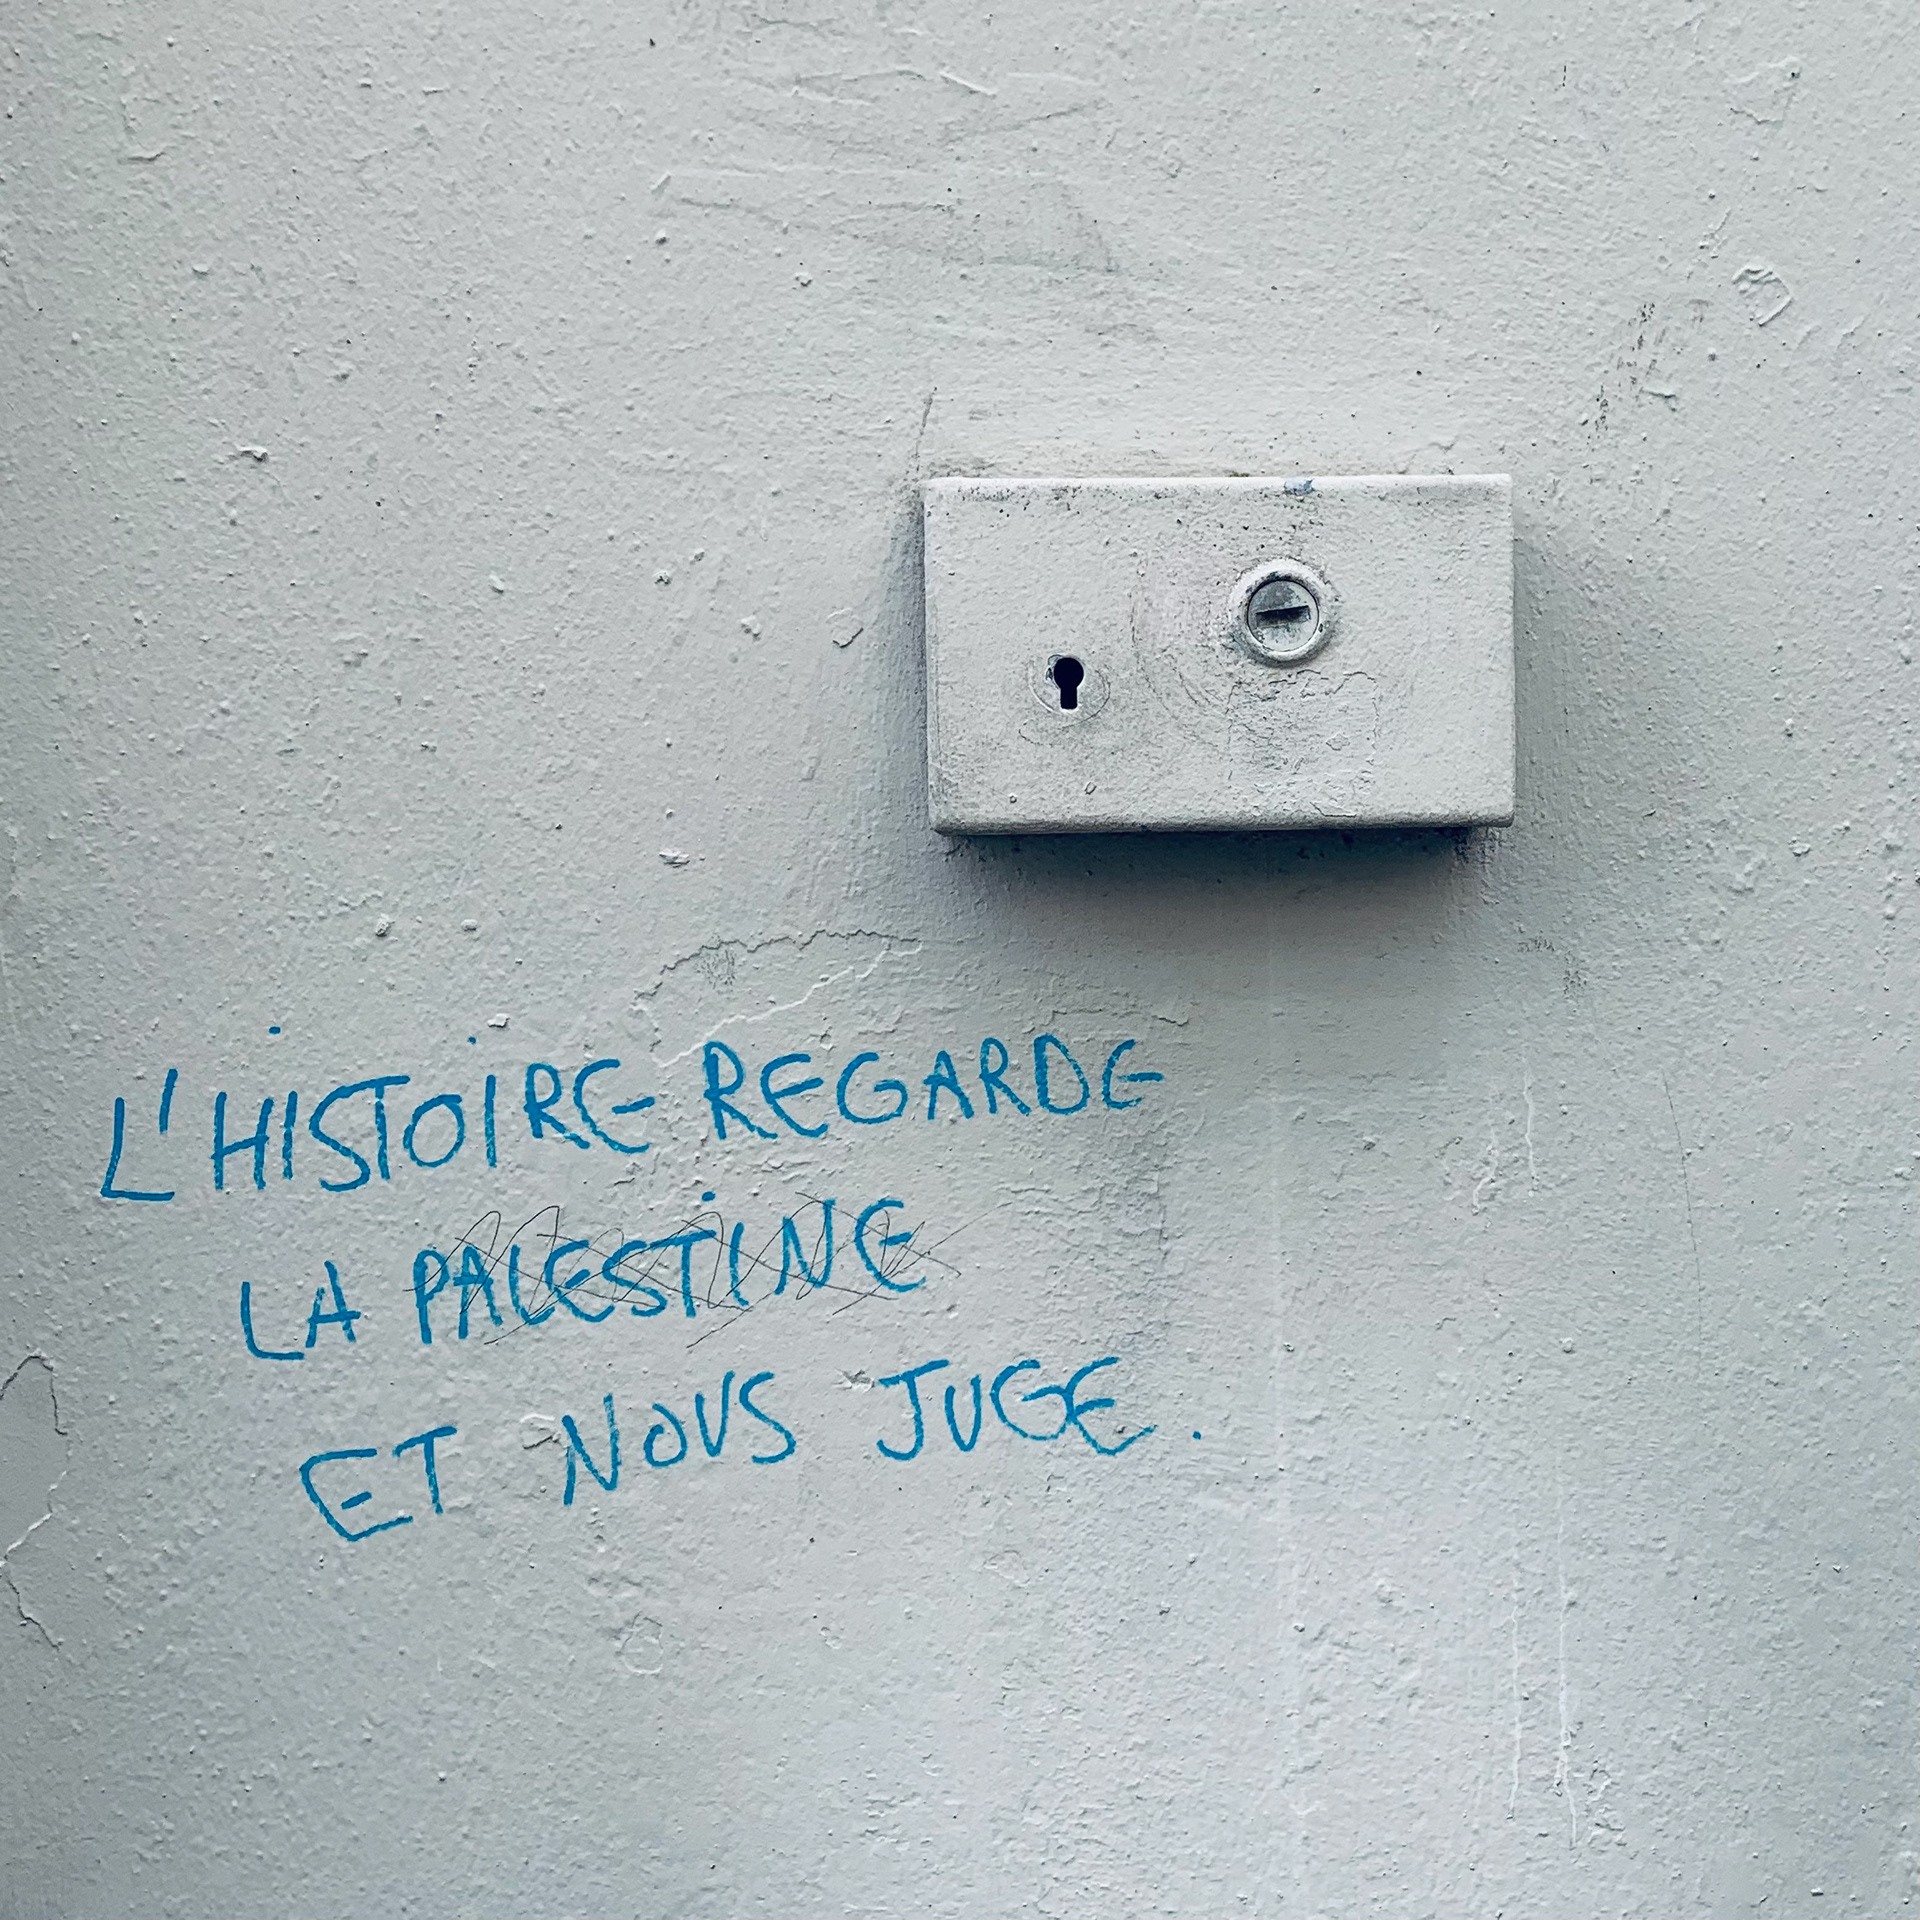 L'HISTOIRE REGARDE
LA PALESTINE
ET NOUS JUGE.